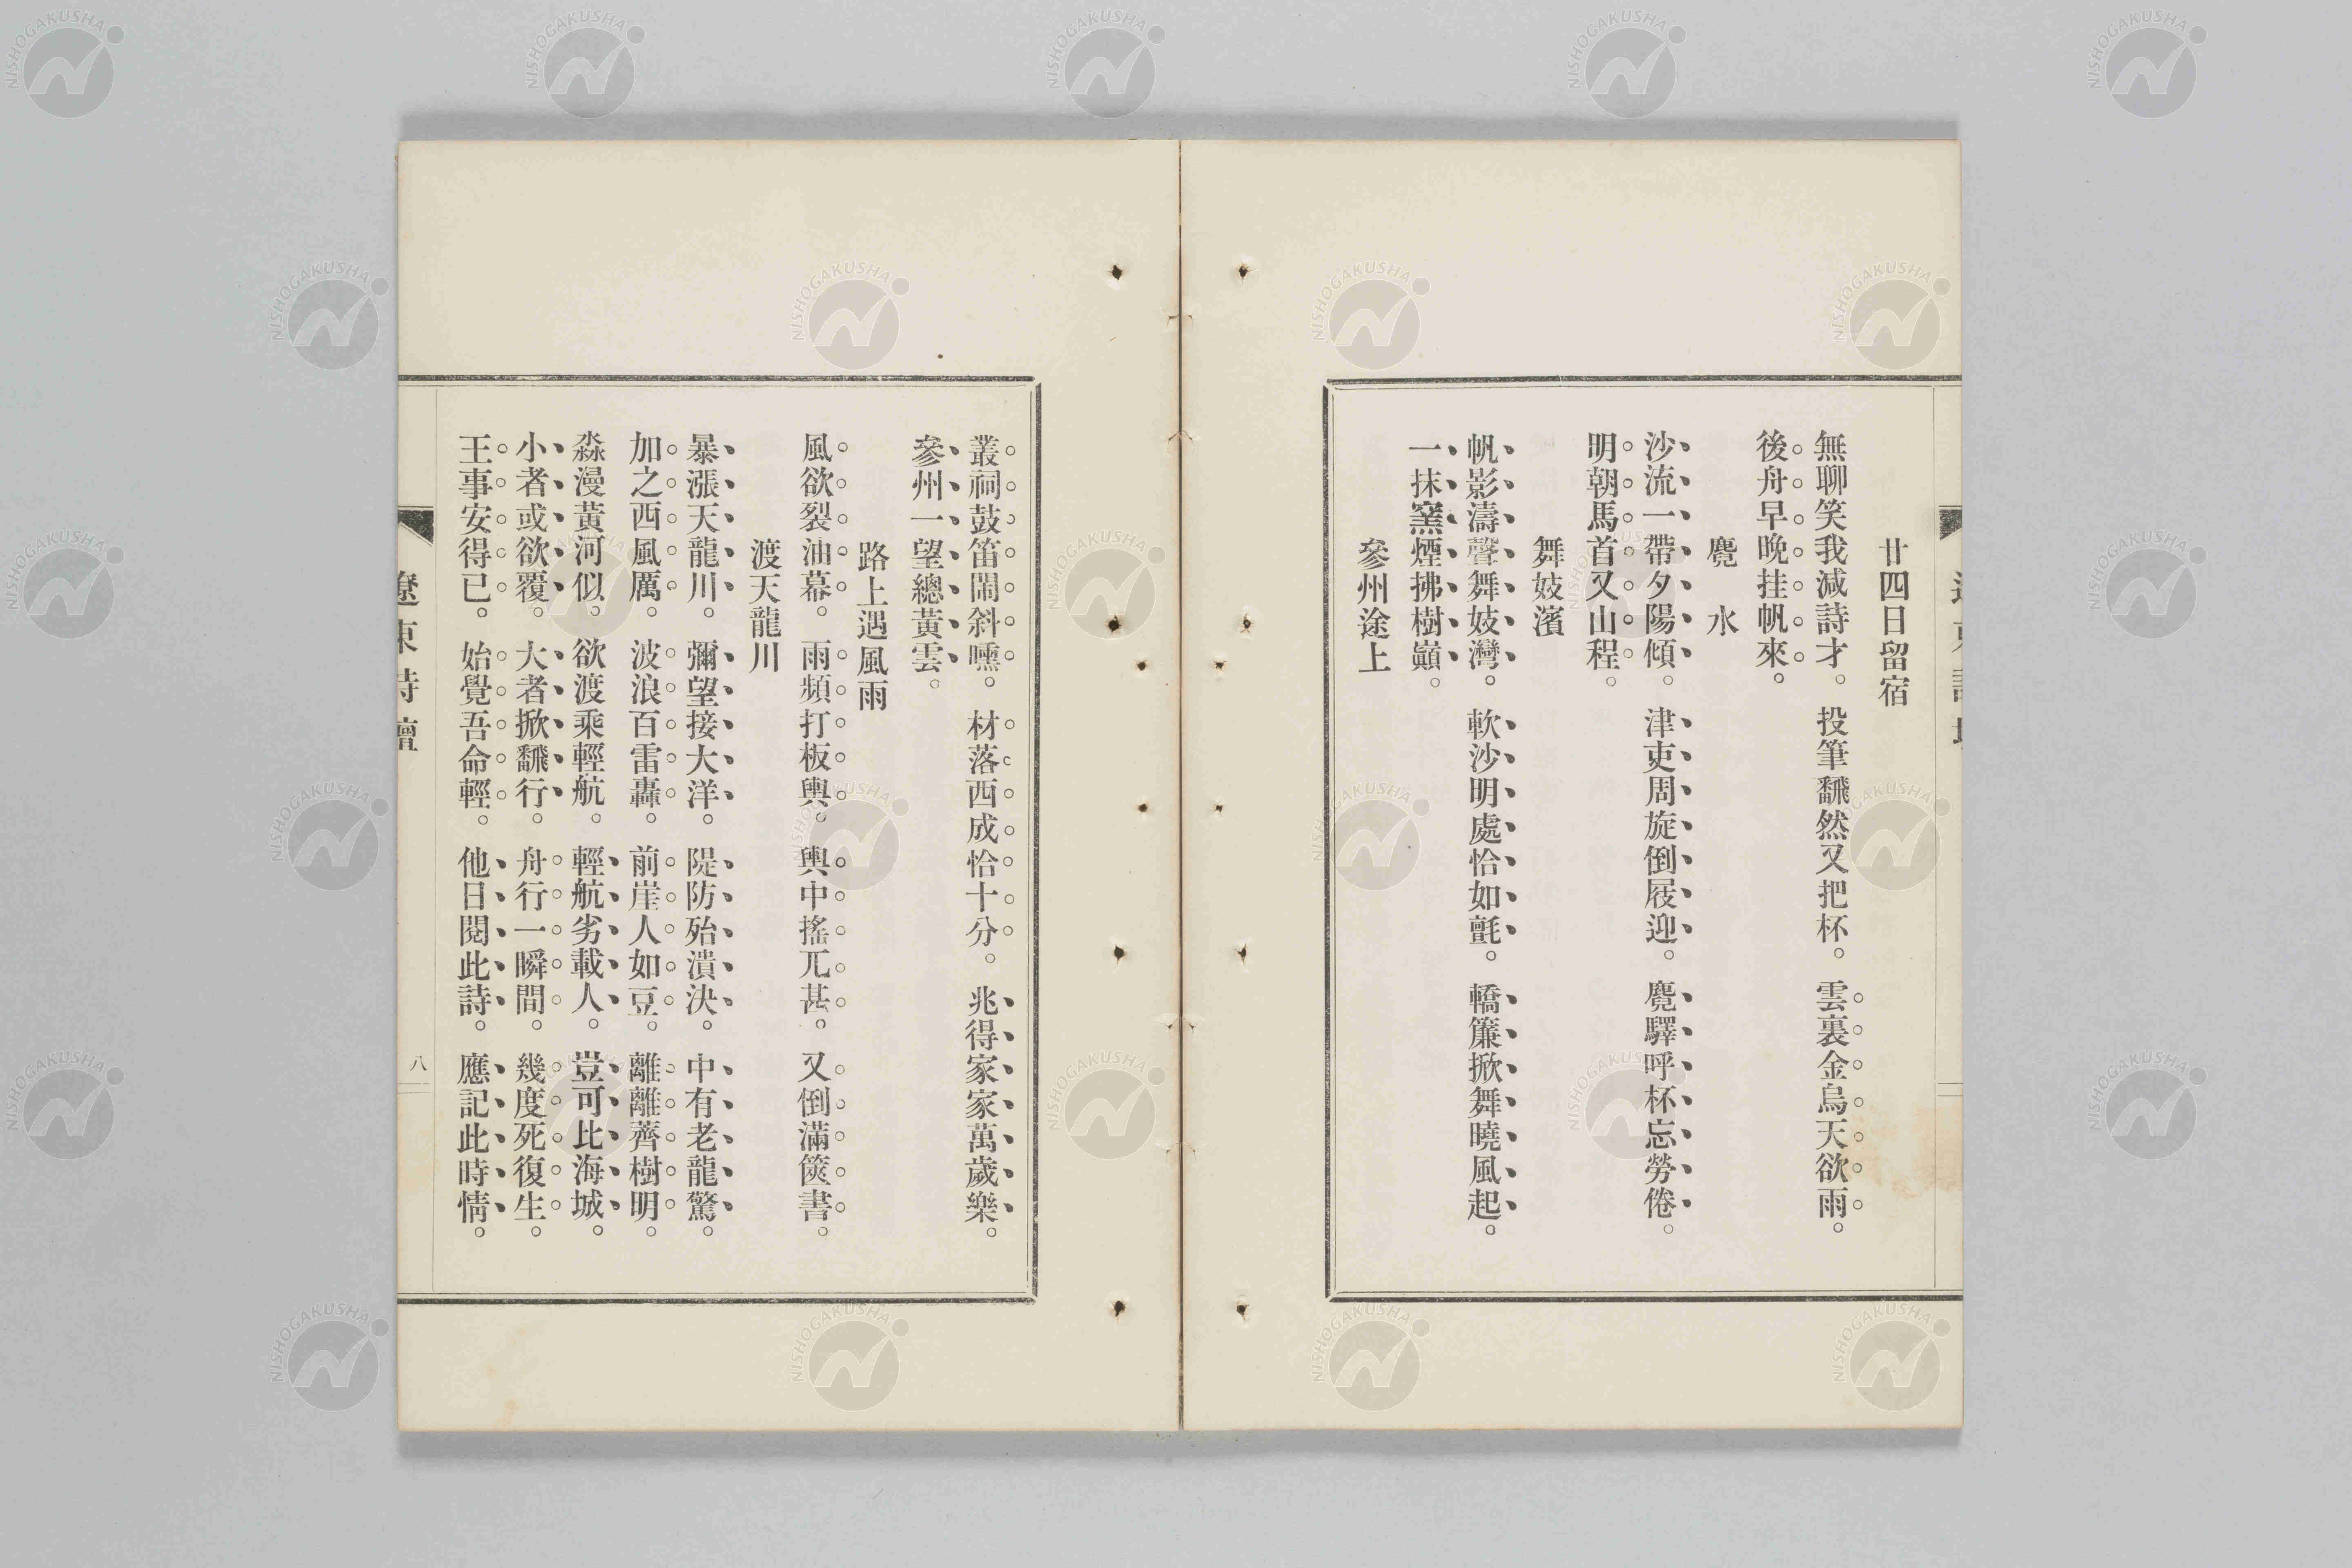 廿四日留宿
無聊笑我減詩才。投筆飜然又把杯。雲裏金烏天欲雨。
後舟早晚挂帆來。
麑水
沙流一帶夕陽傾。津吏周旋倒屐迎。麑驛呼杯忘勞倦。
明朝馬首又山程。
舞妓濱
帆影濤聲舞妓灣。軟沙明處恰如氈。轎簾掀舞曉風起。
一抹窯煙拂樹巓。
參州途上
叢祠鼓笛鬧斜曛。材落西成恰十分。兆得家家萬歲樂。
參州一望總黃雲。
路上遇風雨
風欲裂油幕。雨頻打板輿。輿中搖兀甚。又倒滿篋書。
渡天龍川
暴漲天龍川。彌望接大洋。隄防殆潰決。中有老龍驚。
加之西風厲。波浪百雷轟。前崖人如豆。離離薺樹明。
淼漫黃河似。欲渡乘輕航。輕航劣載人。豈可比海城。
小者或欲覆。大者掀飜行。舟行一瞬間。幾度死復生。
王事安得已。始覺吾命輕。他日閱此詩。應記此時情。
遼東詩壇
八
NISHOGAKUSHA